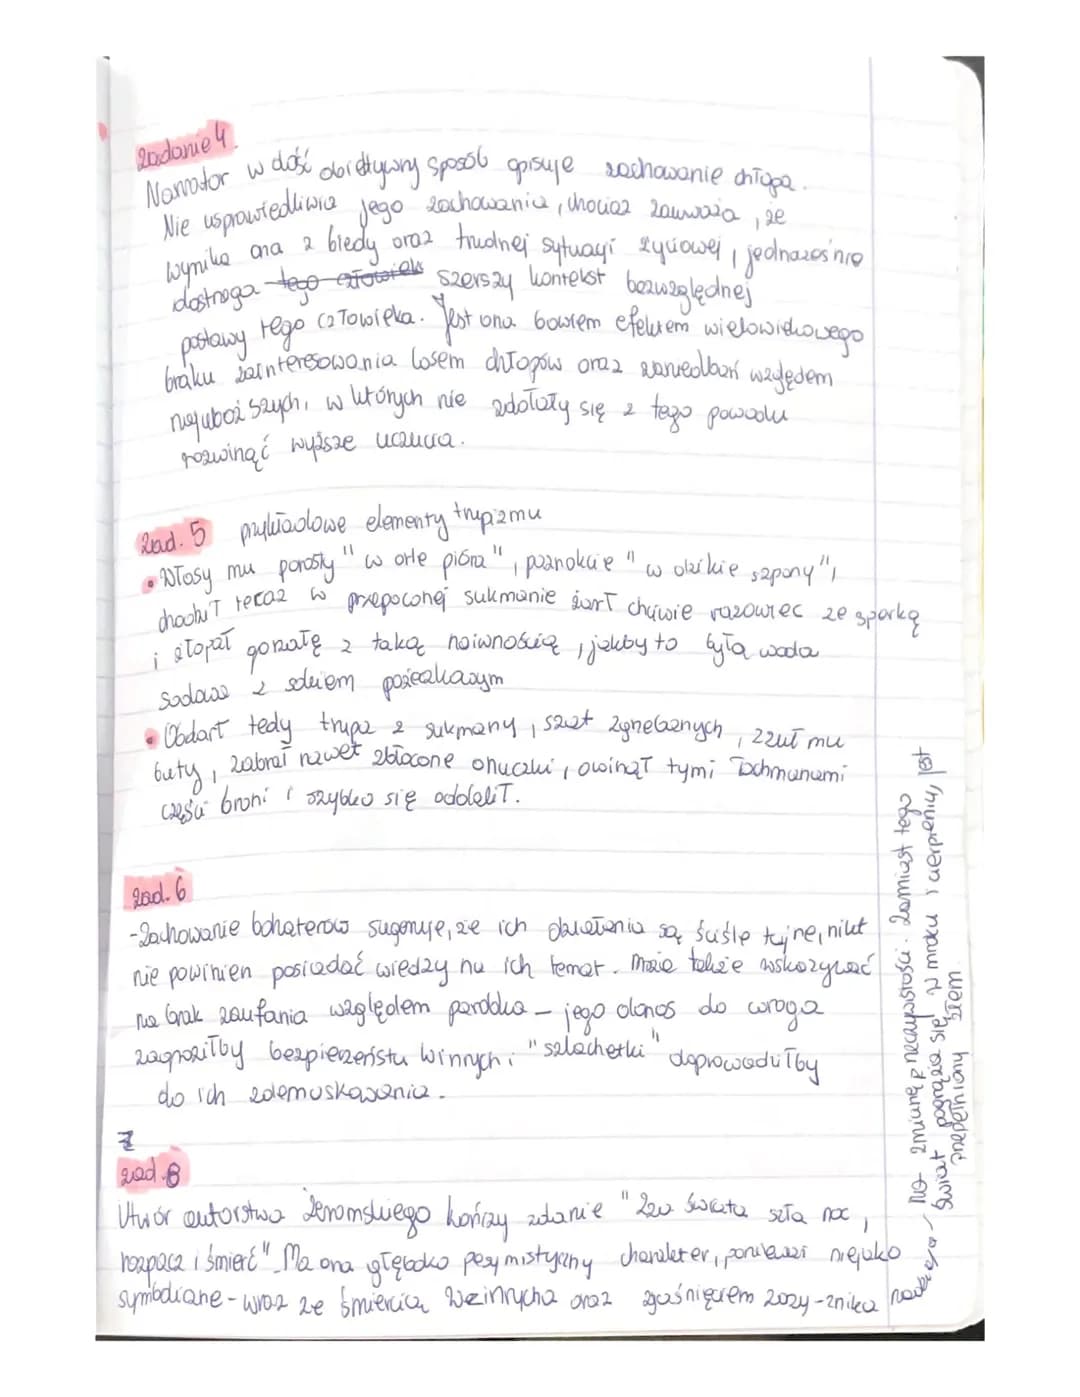 zadanie 4.
Narrator w dość obiektywny sposób opisuje zachowanie chłopa.
Nie usprawiedliwia jego zachowania, chociaż zauważa, że
wynika ona z biedy oraz trudnej sytuacji życiowej, jednocześnie
dostrzega tego człowiek szerszy kontekst bezwzględnej
postawy tego człowieka. Jest ona bowiem efektem wielowiekowego
braku zainteresowania losem chłopów oraz zaniedbań względem
najuboższych, w których nie zdołały się z tego powodu
rozwinąć wyższe uczucia.
zad. 5 przykładowe elementy trupizmu
• Włosy mu porosły "w orle pióra", paznokcie "w dzikie szpony",
chodził teraz w przepoconej sukmanie żarł chciwie razowiec ze sperką
i żłopał gorzałę z taką naiwnością, jakby to była woda
sodowa z sokiem porzeczkowym
• Obdarł tedy trupa z sukmany, szat zgrzebnych, zzuł mu
buty, zabrał nawet zbłocone onuczki, owinął tymi łachmanami
części broni i szybko się oddalił.
zad. 6
-Zachowanie bohaterów sugeruje, że ich działania są ściśle tajne, nikt
nie powinien posiadać wiedzy na ich temat. Może także wskazywać
na brak zaufania względem parobka – jego donos do wroga
zagroziłby bezpieczeństu Winrych i "szlachetki" doprowadziłby
do ich zdemaskowania.
7
zad. 8
Utwór autorstwa Żeromskiego kończy zdanie "Ze świata szła noc,
rozpacz i śmierć" Ma ona głęboko pesymistyczny charakter, ponieważ niejako
symbolicznie - wraz ze śmiercią Winrycha oraz zgaśnięciem zorzy - znika nadzieja
na zmianę rzeczywistości. Zamiast tego
świat pogrąża się w mroku i cierpieniu, jest
przepełniony złem.